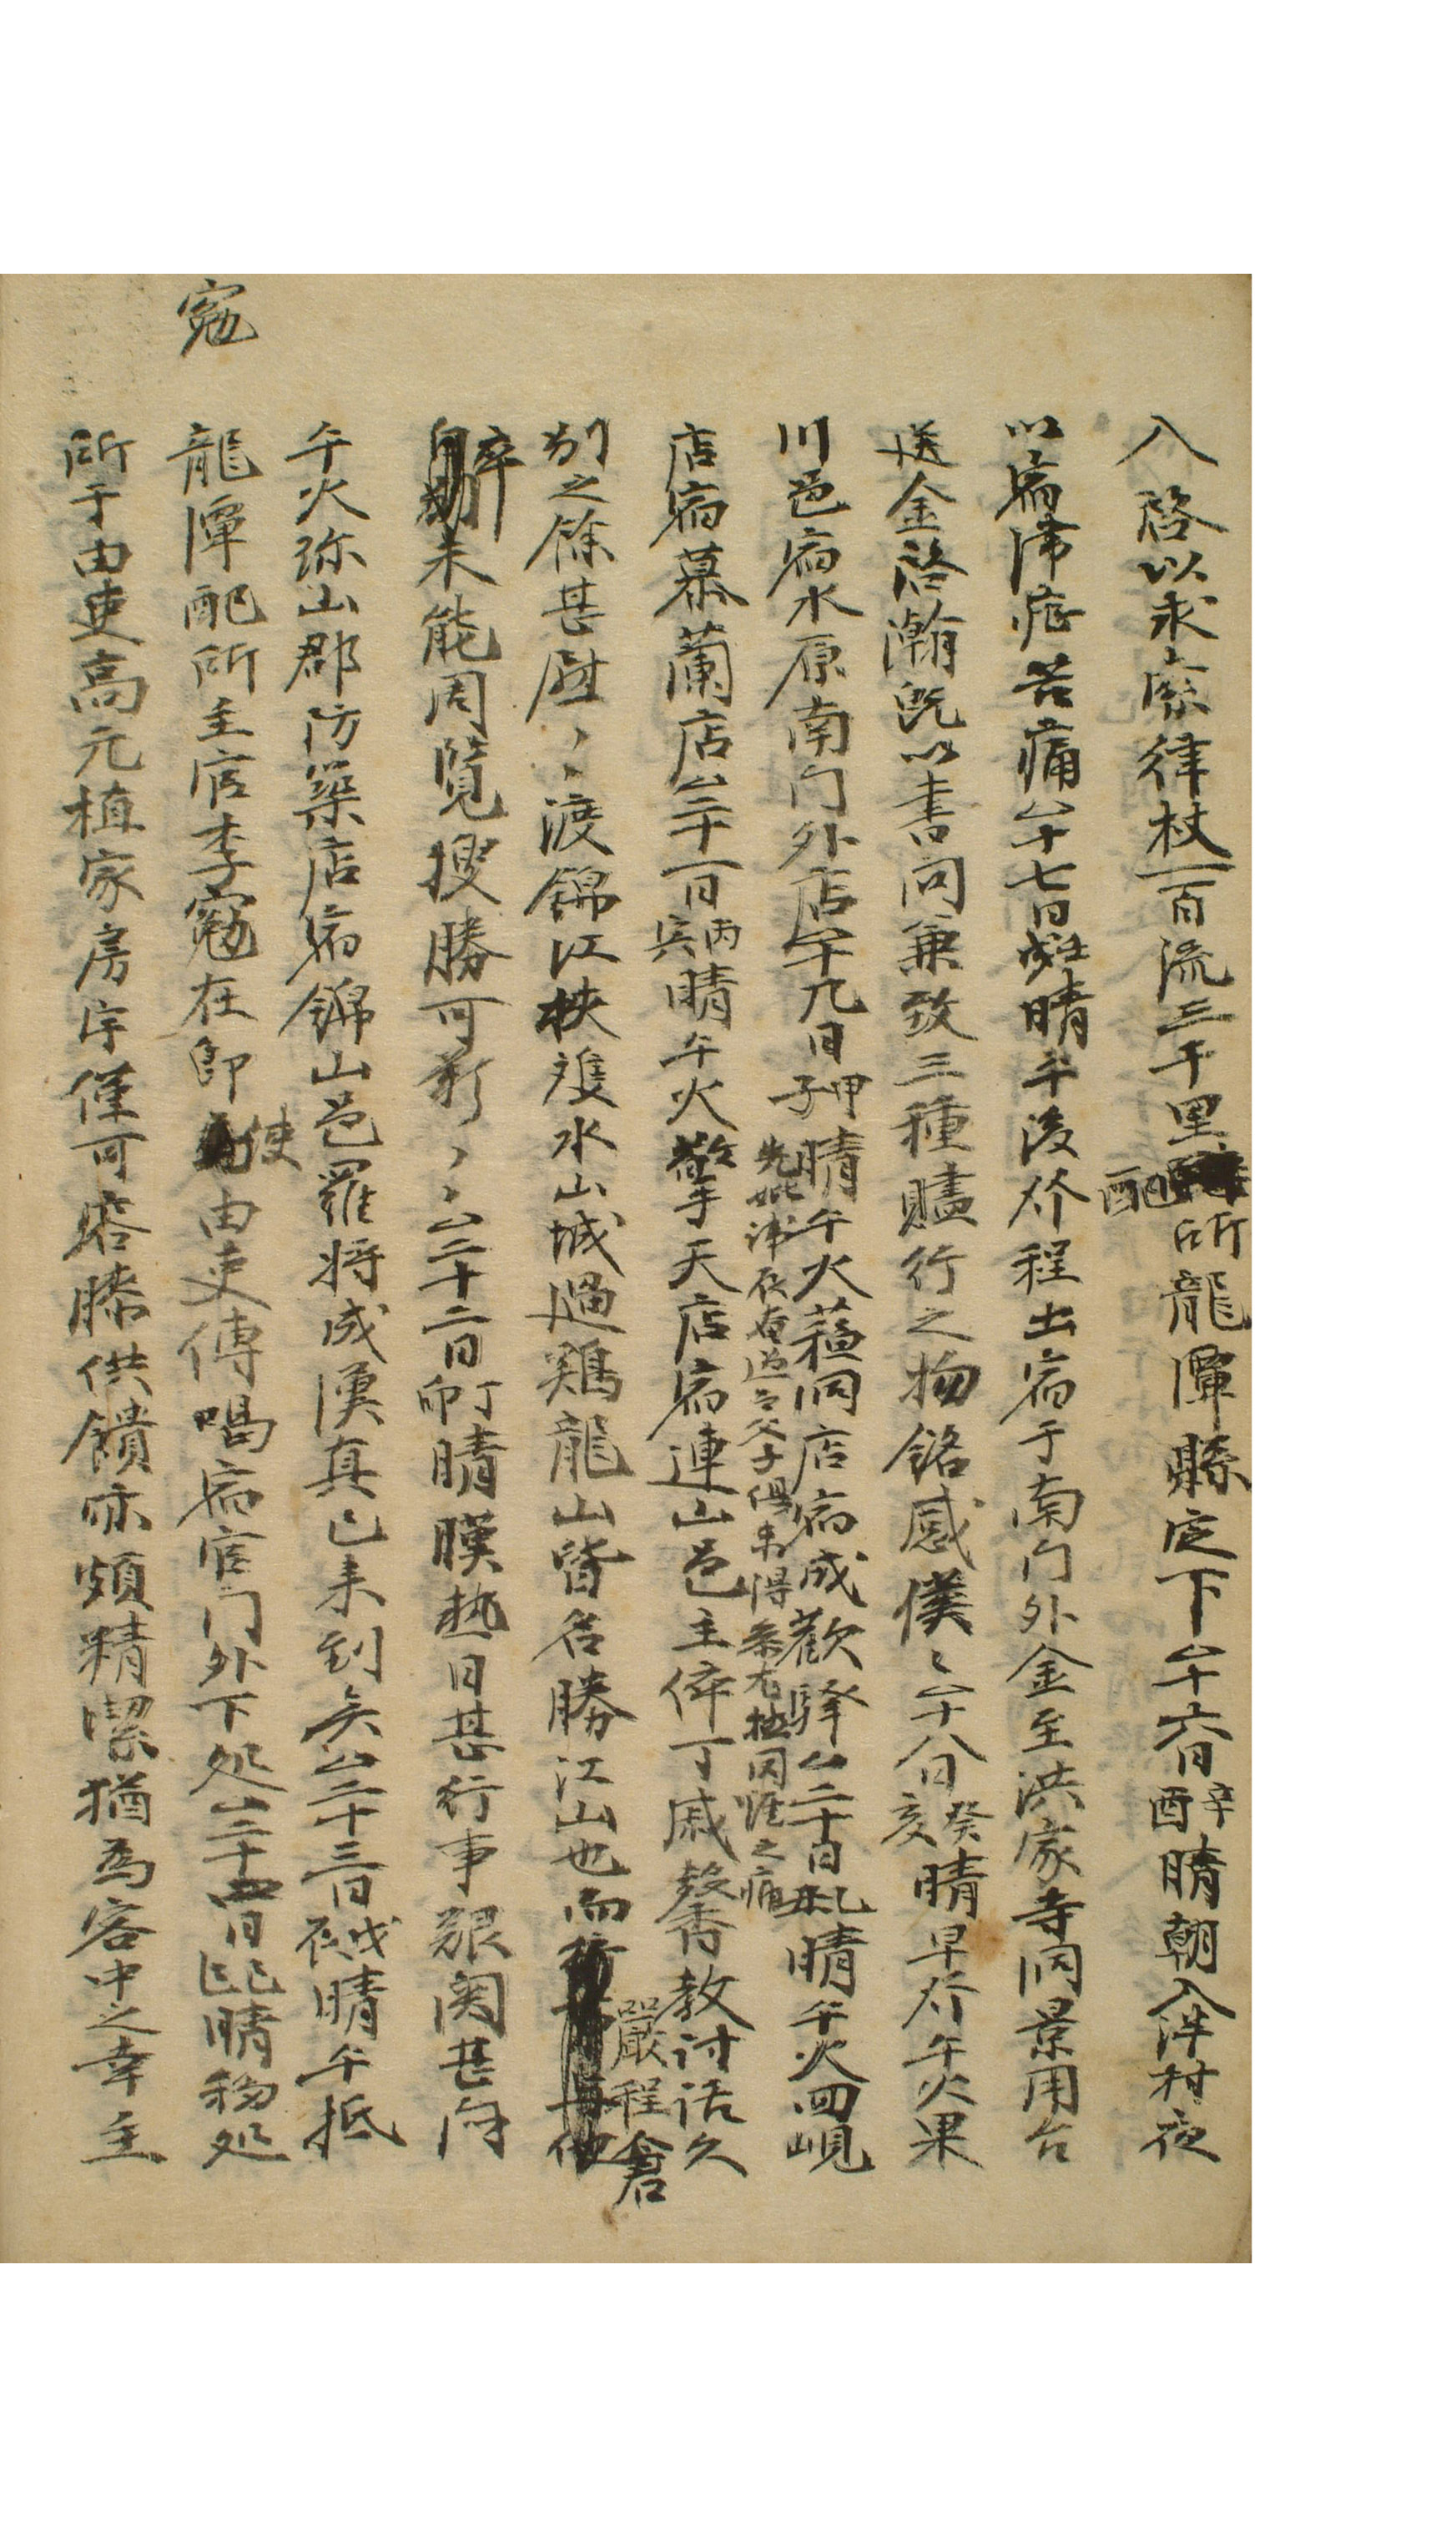 入 啓以永廢律杖一百流三千里配所龍潭縣定下△十六日辛酉晴朝入泮村夜
以宿滯症苦痛△十七日壬戌晴午後발程出宿于南门外金至洪家寺洞景用台
送金洛瀚旣以書问兼致三種贐行之物銘感僕〻△十八日癸亥晴早午火果
川邑宿水原南门外店△十九日甲子晴午火葛洞店宿成歡驿△二十日乙丑晴午火四峴
先妣諱辰有過之父子俱未得參尤極罔涯之痛
店宿慕蘭店△二十一日丙寅晴午火擎天店宿連山邑主倅丁戚馨教討话久
別之餘甚慰〻渡錦江挾雙水山城過鷄龍山皆名勝江山也而嚴程倉
卒未能周覽搜勝可歎〻△二十二日丁卯晴暵热日甚行事艱関甚闷
午火珎山郡防築店宿錦山邑羅將成漢真已来到矣△二十三日戊辰晴午抵
寃
龍潭配所主官李寃在卽使由吏傳喝宿官门外下処△二十四日己巳晴移処
所于由吏高元植家房宇僅可容膝供饋亦頗精潔猶為客中之幸主